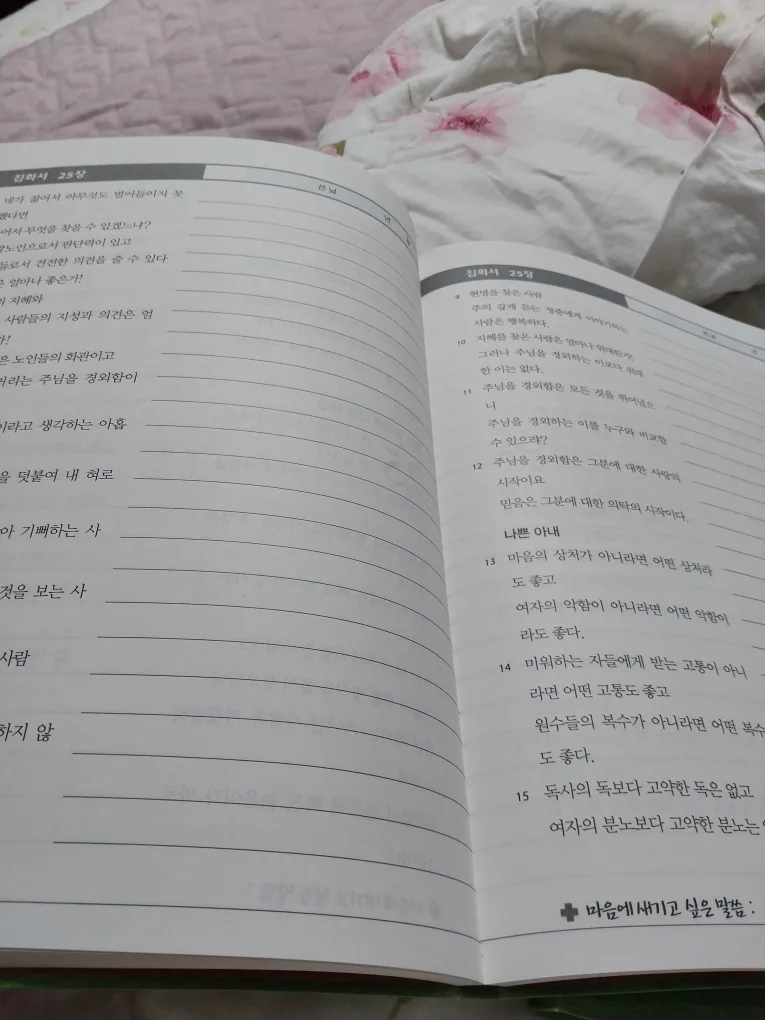 집회서 25장
쓴 날 년 월
네가 젊어서 아무것도 벌어들이지 못
했다면
어서 무엇을 찾을 수 있겠느냐?
노인으로서 판단력이 있고
들로서 건전한 의견을 줄 수 있다
은 얼마나 좋은가!
의 지혜와
사람들의 지성과 의견은 얼
가!
은 노인들의 화관이고
거리는 주님을 경외함이
이라고 생각하는 아홉
을 덧붙여 내 혀로
아 기뻐하는 사
것을 보는 사
사람
하지 않
집회서 25장
9 현명을 찾은 사람
주의 깊게 듣는 청중에게 이야기하는
사람은 행복하다.
10 지혜를 찾은 사람은 얼마나 위대한가!
그러나 주님을 경외하는 이보다 위대
한 이는 없다.
11 주님을 경외함은 모든 것을 뛰어넘으
니
주님을 경외하는 이를 누구와 비교할
수 있으랴?
12 주님을 경외함은 그분에 대한 사랑의
시작이요
믿음은 그분에 대한 의탁의 시작이다.
나쁜 아내
13 마음의 상처가 아니라면 어떤 상처라
도 좋고
여자의 악함이 아니라면 어떤 악함이
라도 좋다.
14 미워하는 자들에게 받는 고통이 아니
라면 어떤 고통도 좋고
원수들의 복수가 아니라면 어떤 복수
도 좋다.
15 독사의 독보다 고약한 독은 없고
여자의 분노보다 고약한 분노는
마음에 새기고 싶은 말씀 :